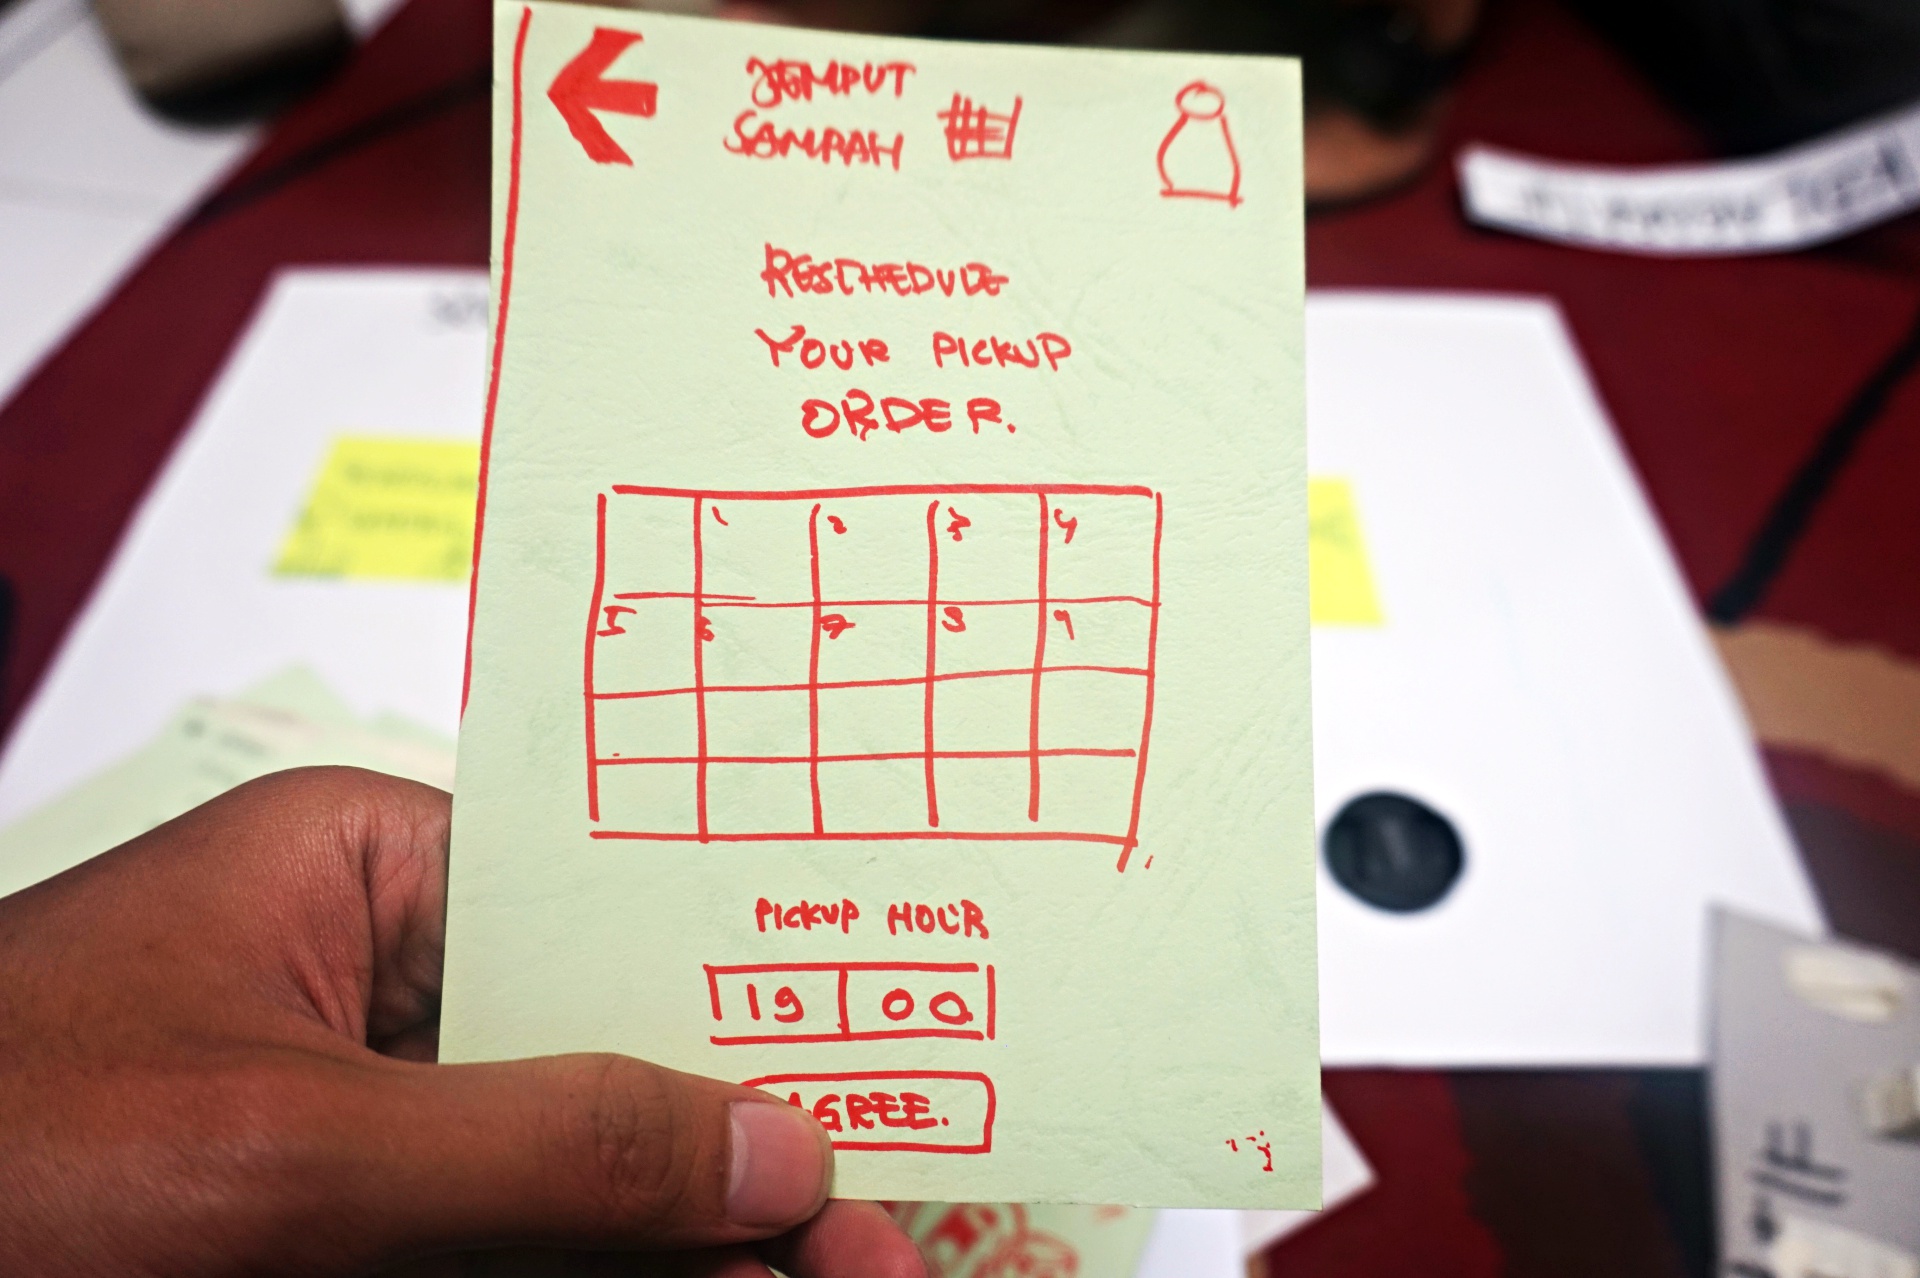 JEMPUT
SAMPAH
RESCHEDULE
YOUR PICKUP
ORDER.
1 2 3 4
5 6 7 8 9
PICKUP HOUR
19 00
AGREE.